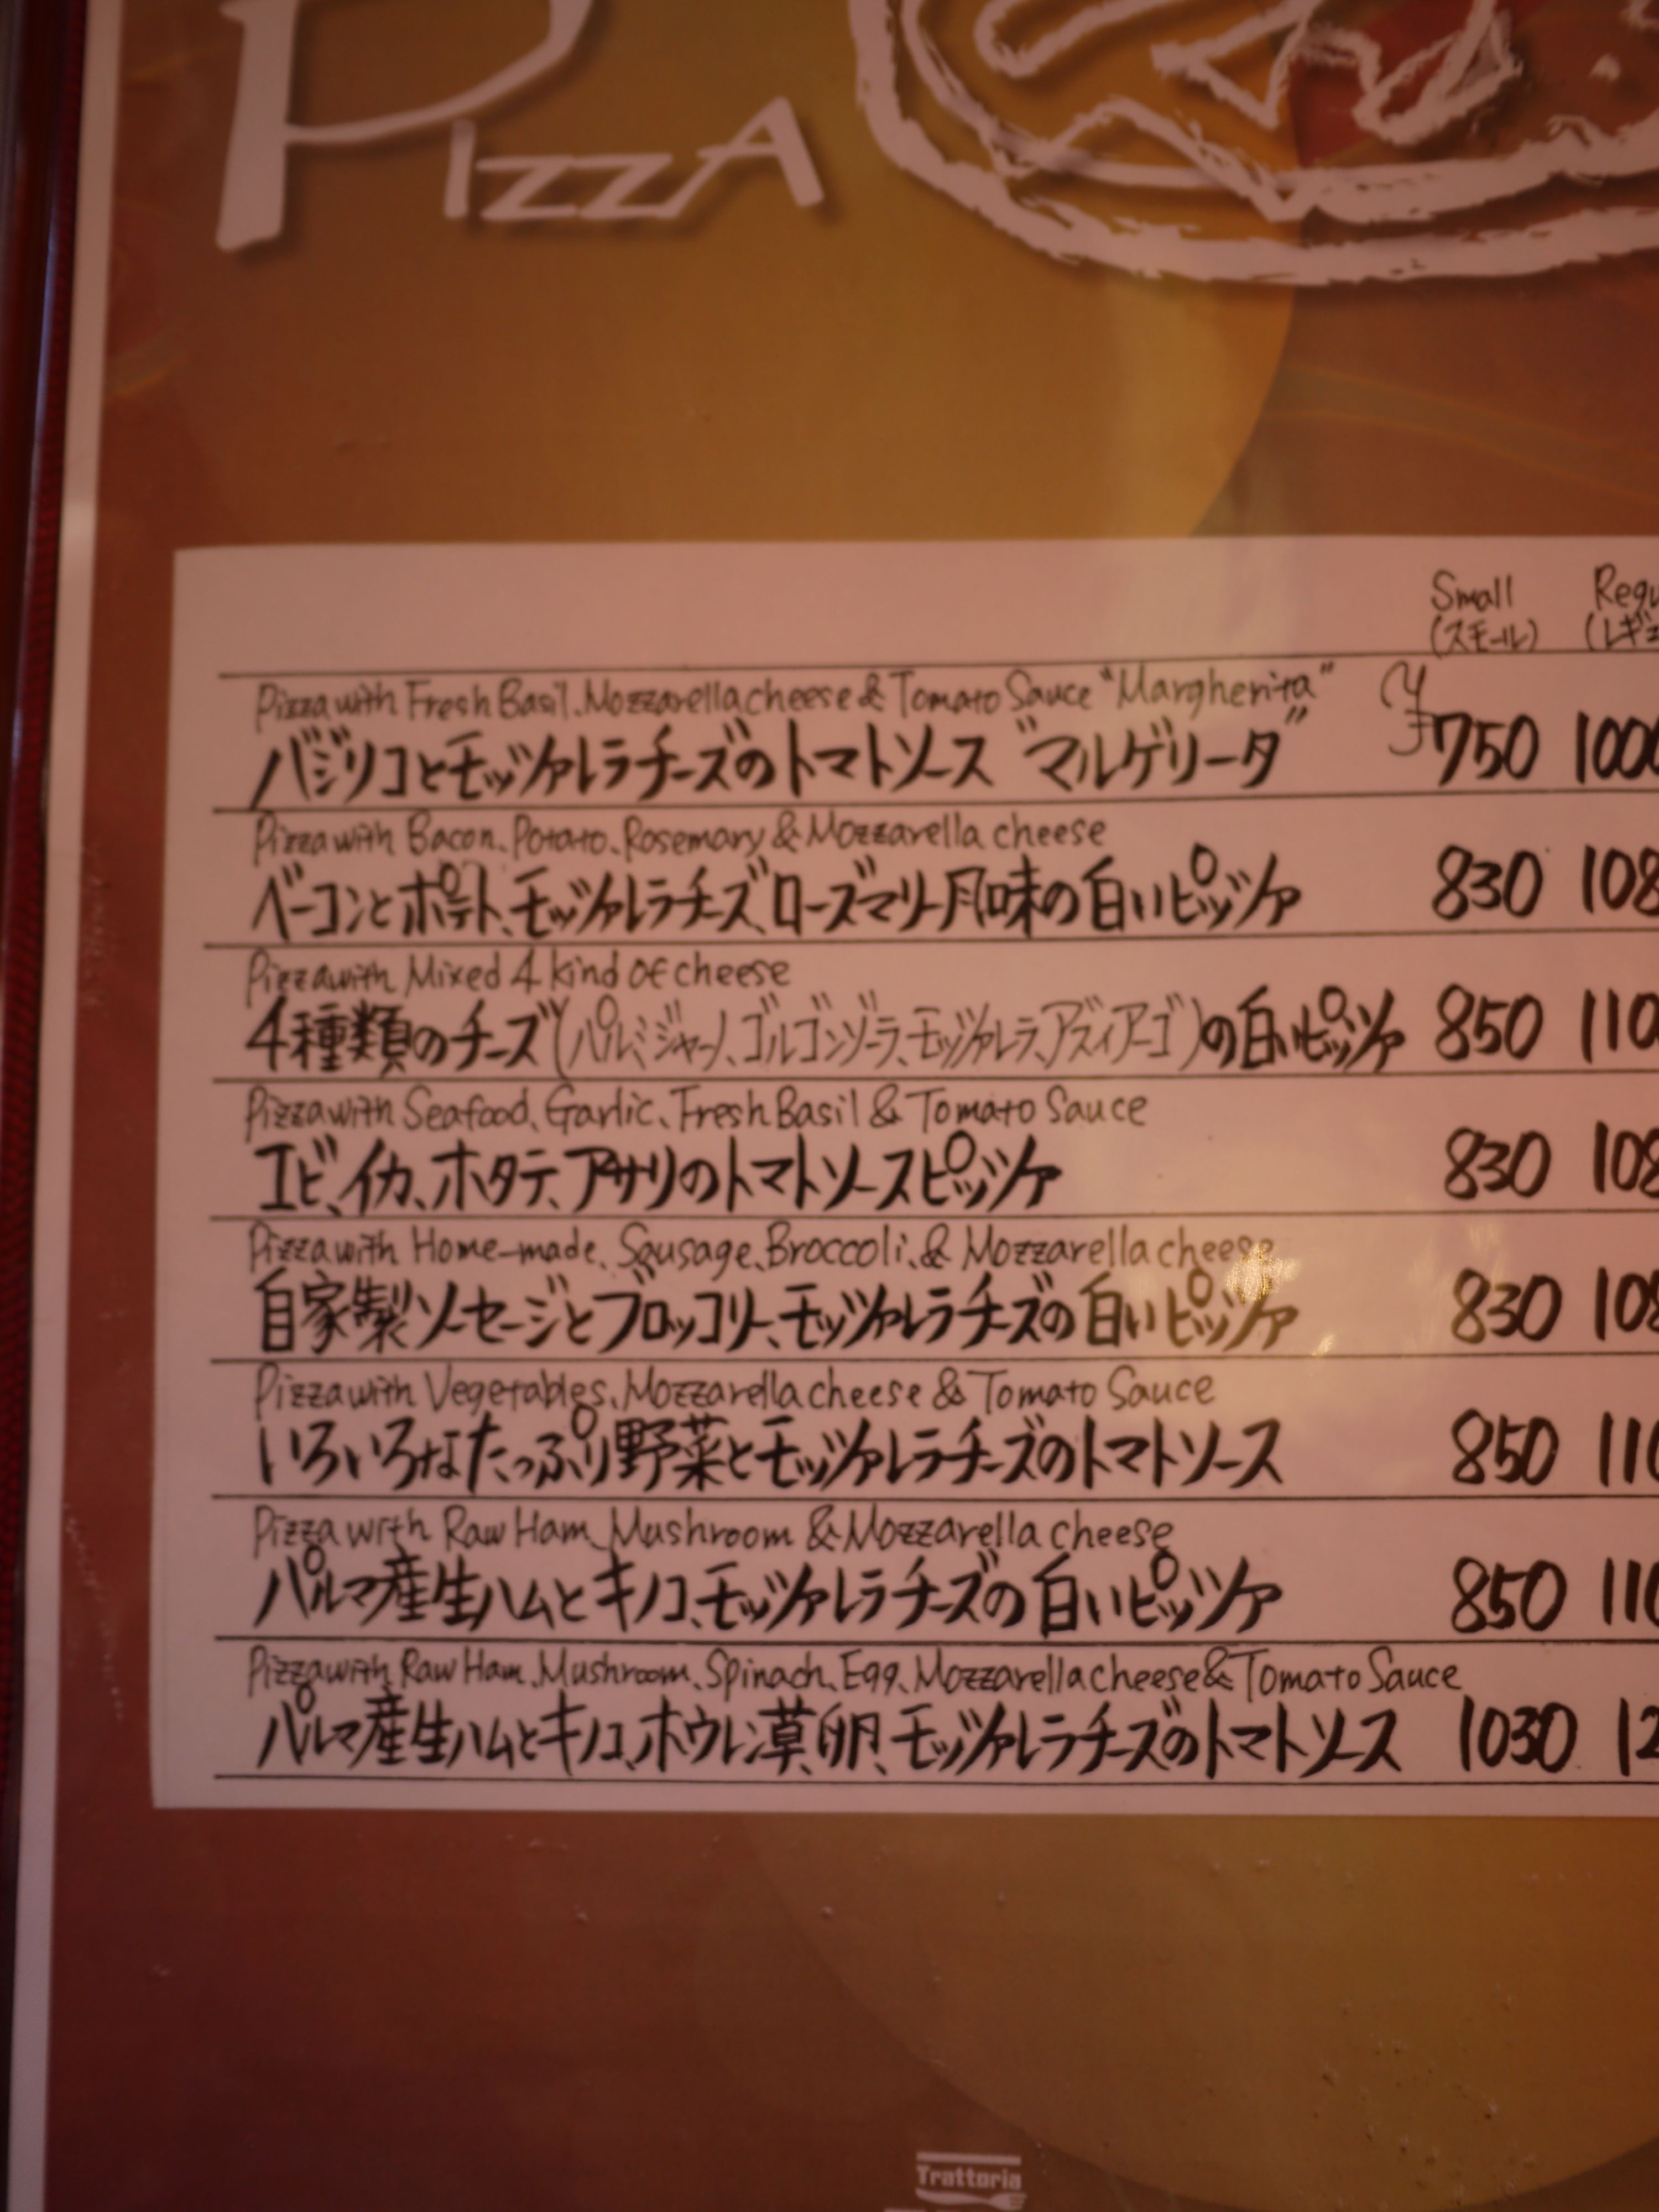 PIZZA
Small
(スモール)
Pizza with Fresh Basil、Mozzarella cheese & Tomato Sauce "Margherita"
バジリコとモッツァレラチーズのトマトソース "マルゲリータ" ¥750
Pizza with Bacon、Potato、Rosemary & Mozzarella cheese
ベーコンとポテト、モッツァレラチーズ、ローズマリー風味の白いピッツァ 830
Pizza with Mixed 4 kind of cheese
4種類のチーズ(パルミジャーノ、ゴルゴンゾーラ、モッツァレラ、アズィアーゴ)の白いピッツァ 850
Pizza with Seafood、Garlic、Fresh Basil & Tomato Sauce
エビ、イカ、ホタテ、アサリのトマトソースピッツァ 830
Pizza with Home-made、Sausage、Broccoli、& Mozzarella cheese
自家製ソーセージとブロッコリー、モッツァレラチーズの白いピッツァ 830
Pizza with Vegetables、Mozzarella cheese & Tomato Sauce
いろいろなたっぷり野菜とモッツァレラチーズのトマトソース 850
Pizza with Raw Ham、Mushroom & Mozzarella cheese
パルマ産生ハムとキノコ、モッツァレラチーズの白いピッツァ 850
Pizza with Raw Ham、Mushroom、Spinach、Egg、Mozzarella cheese & Tomato Sauce
パルマ産生ハムとキノコ、ホウレン草、卵、モッツァレラチーズのトマトソース 1030
Trattoria